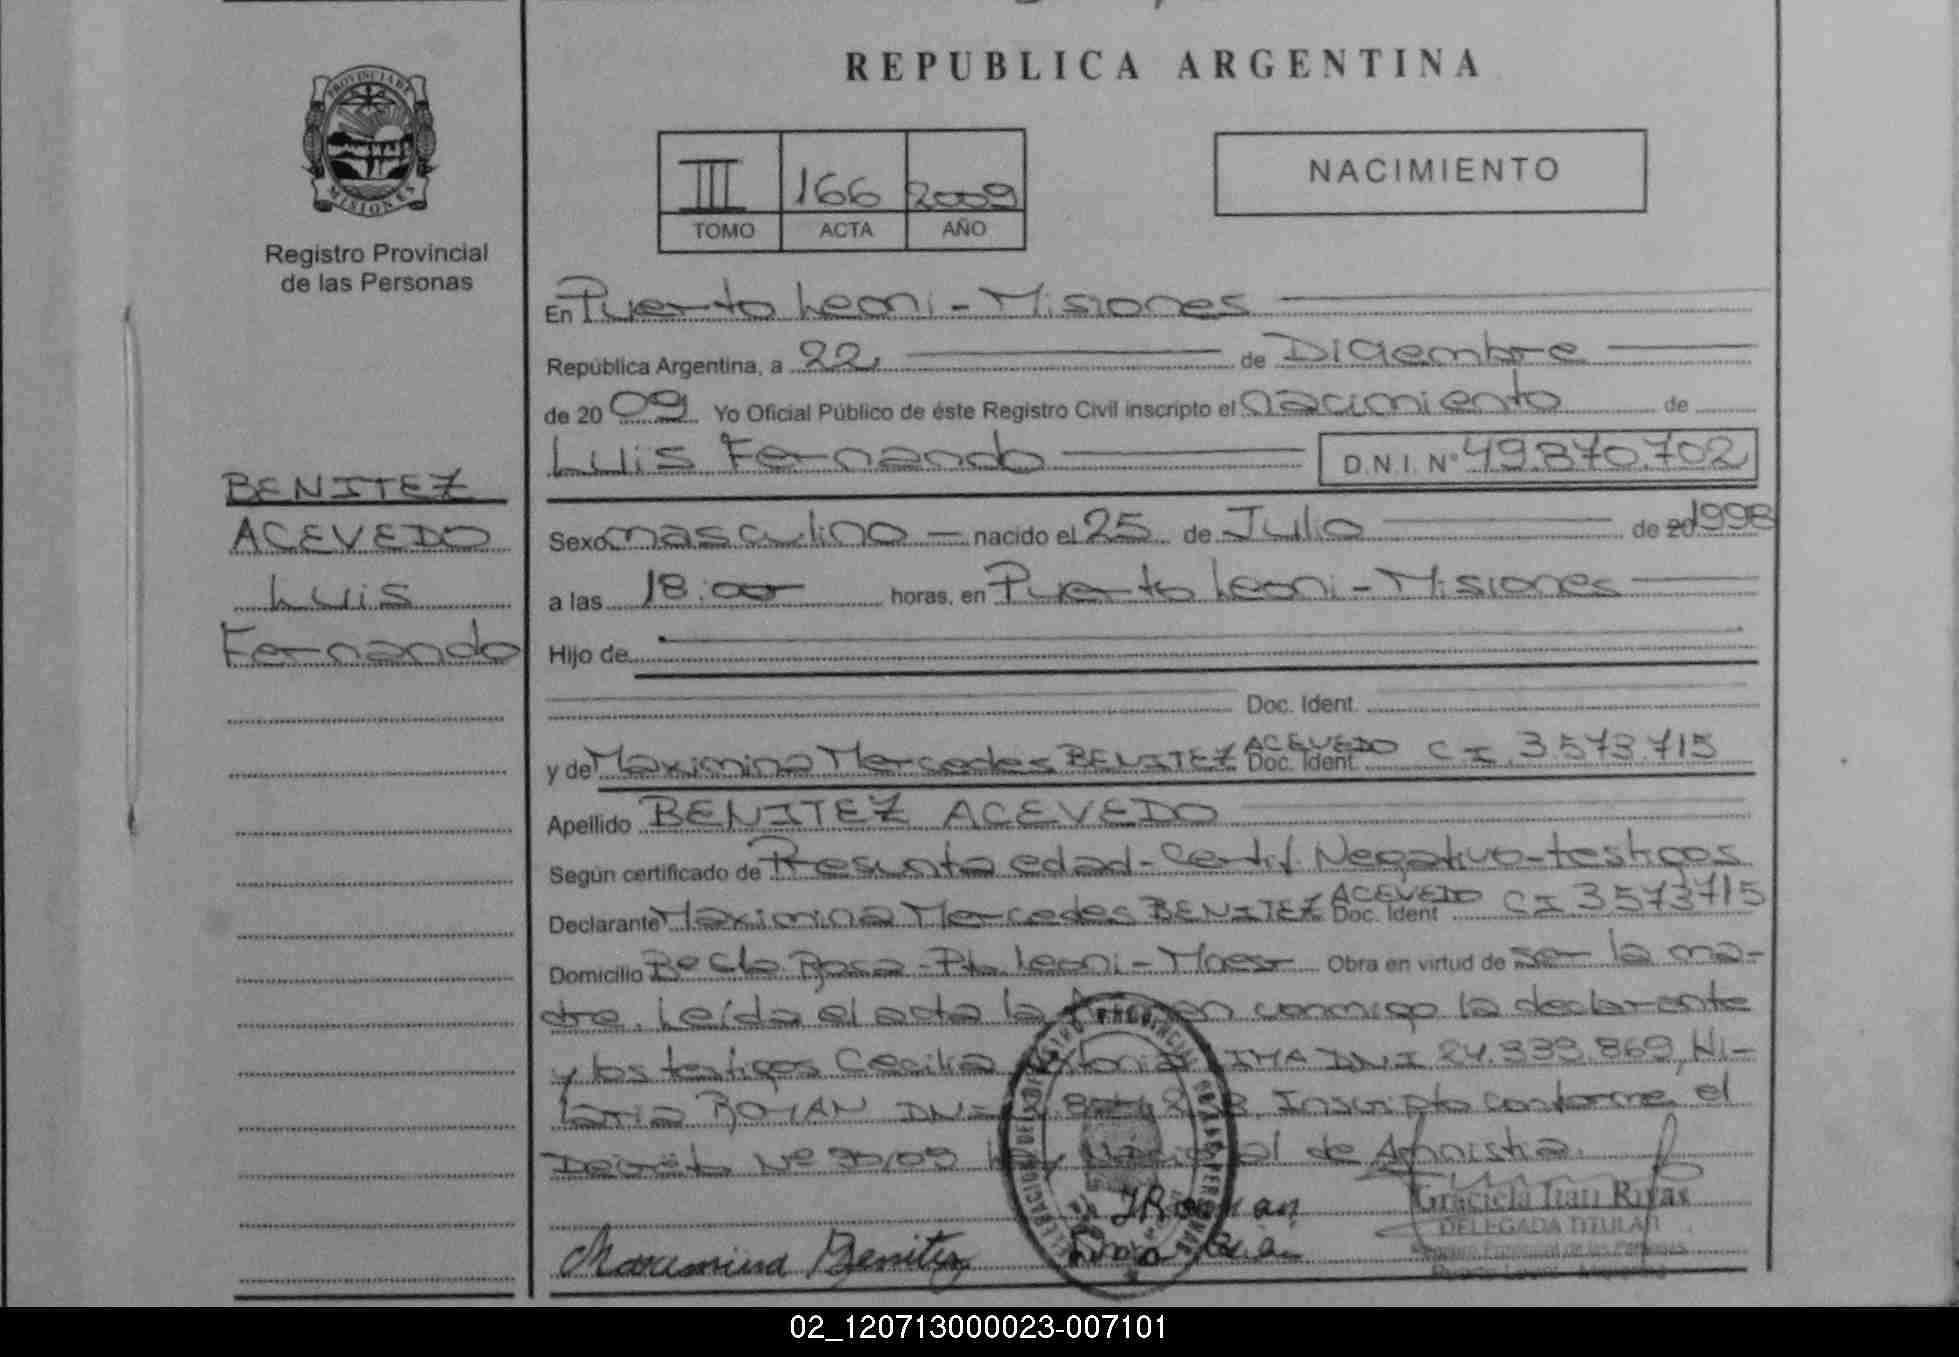 REPUBLICA ARGENTINA
PROVINCIA DE
MISIONES
Registro Provincial
de las Personas
III 166 2009
TOMO ACTA AÑO
NACIMIENTO
BENITEZ
ACEVEDO
Luis
Fernando
En Puerto Leoni - Misiones
República Argentina, a 22 de Diciembre
de 20 09 Yo Oficial Público de éste Registro Civil inscripto el nacimiento de
Luis Fernando D.N.I. Nº 49.870.702
Sexo masculino nacido el 25 de Julio de 20 1998
a las 18:00 horas, en Puerto Leoni - Misiones
Hijo de
Doc. Ident.
y de Maximina Mercedes BENITEZ ACEVEDO Doc. Ident CI 3.573.715
Apellido BENITEZ ACEVEDO
Según certificado de Presunta edad - Certif Negativo - testigos
Declarante Maximina Mercedes BENITEZ ACEVEDO Doc. Ident CI 3573715
Domicilio Bº Santa Rosa - Pto Leoni - Obra en virtud de ser la ma-
dre. Leída el acta la firman conmigo la declarante
y los testigos Cecilia LIMA DNI 24.339.869, Hi-
laria ROMAN DNI Inscripto conforme el
Decreto Nº 90/09 Ley Nacional de Amnistia.
Maximina Benitez
Graciela Itati Rivas
DELEGADA TITULAR
Registro Provincial de las Personas
02_120713000023-007101